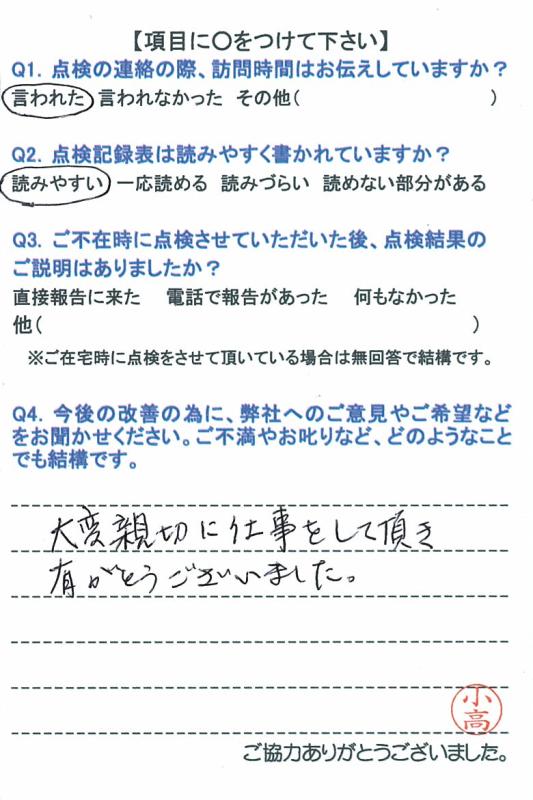 【項目に〇をつけて下さい】
Q1. 点検の連絡の際、訪問時間はお伝えしていますか？
言われた 言われなかった その他( )
Q2. 点検記録表は読みやすく書かれていますか？
読みやすい 一応読める 読みづらい 読めない部分がある
Q3. ご不在時に点検させていただいた後、点検結果の
ご説明はありましたか？
直接報告に来た 電話で報告があった 何もなかった
他( )
※ご在宅時に点検をさせて頂いている場合は無回答で結構です。
Q4. 今後の改善の為に、弊社へのご意見やご希望など
をお聞かせください。ご不満やお叱りなど、どのようなこと
でも結構です。
大変親切に仕事をして頂き
有がとうございました。
小高
ご協力ありがとうございました。